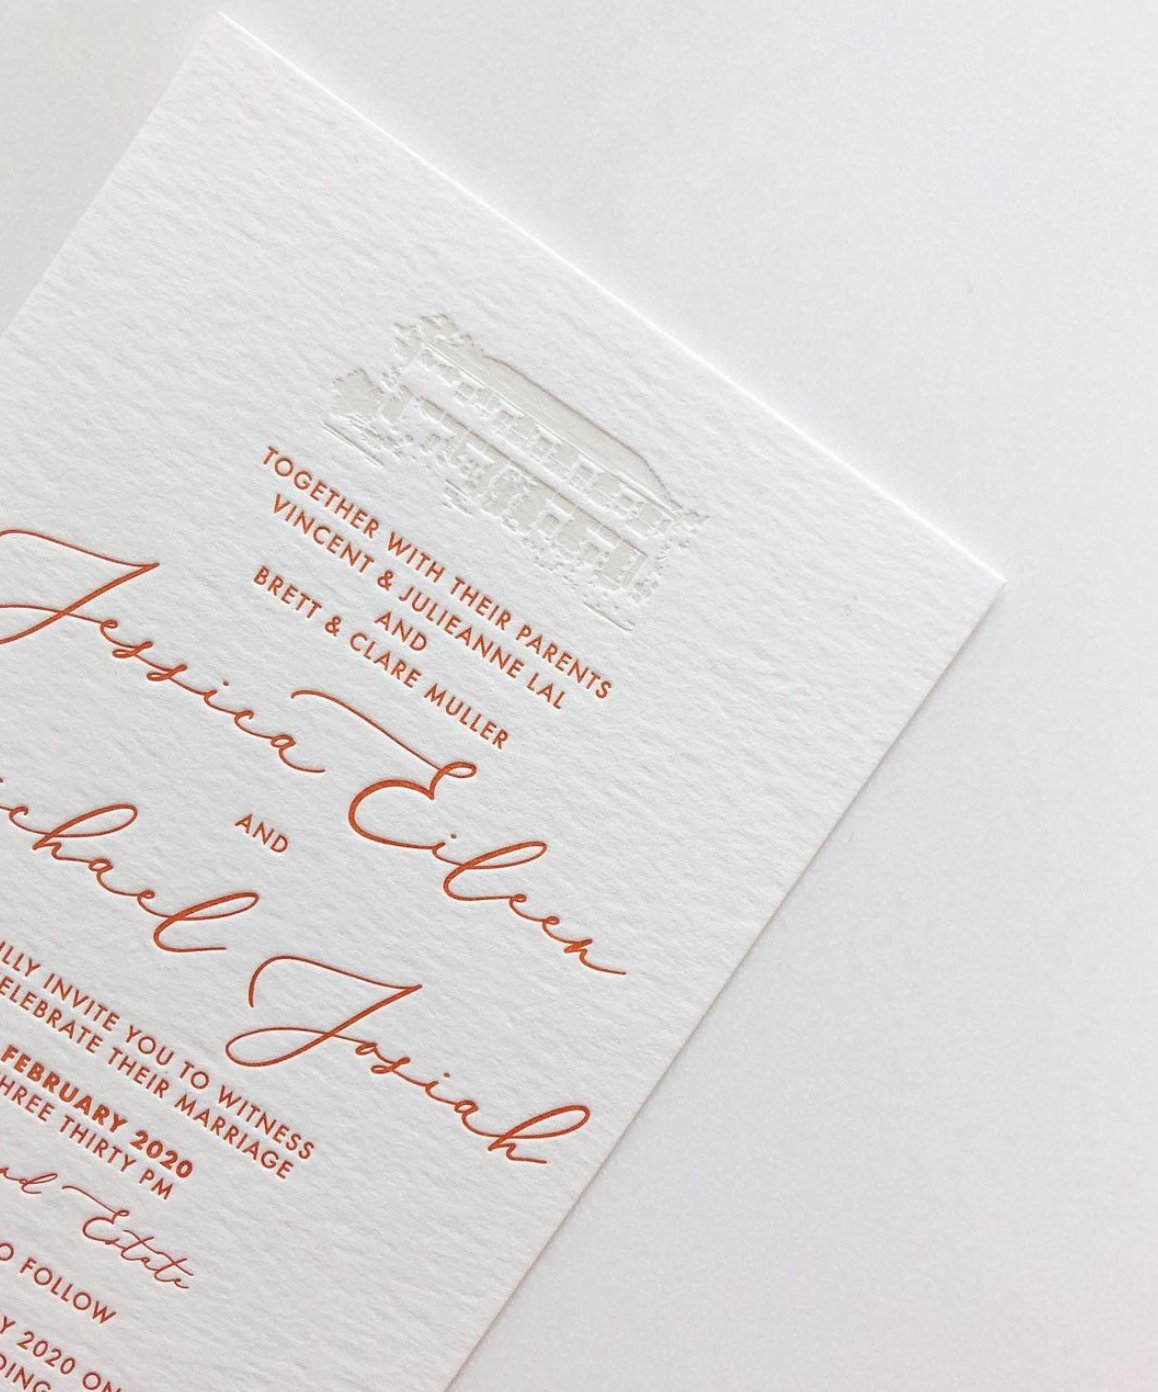 TOGETHER WITH THEIR PARENTS
VINCENT & JULIEANNE LAL
AND
BRETT & CLARE MULLER
Jessica Eileen
AND
Josiah
INVITE YOU TO WITNESS
THEIR MARRIAGE
FEBRUARY 2020
THIRTY PM
Estate
FOLLOW
2020 ON